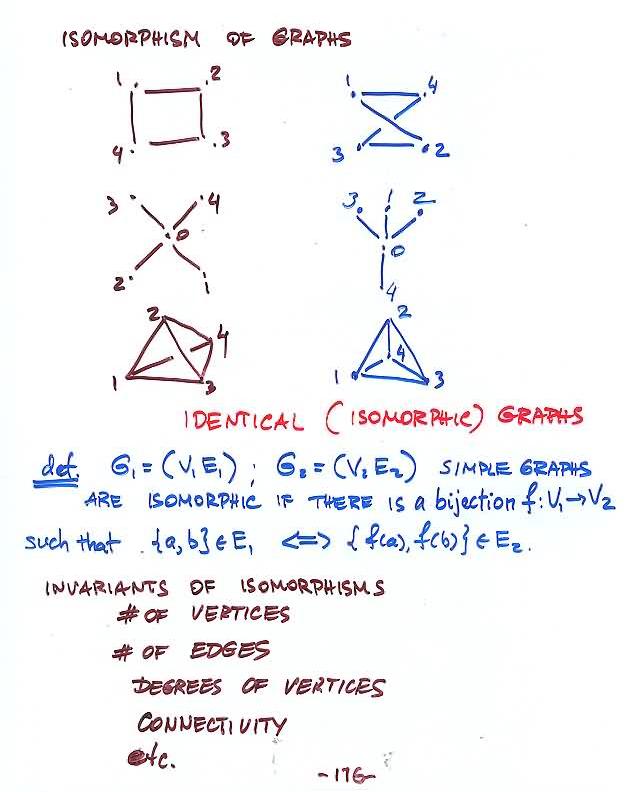 ISOMORPHISM OF GRAPHS
1 2 1 4
4 3 3 2
3 4 3 1 2
0 0
2 1 4
2 2
4 4
1 3 1 3
IDENTICAL (ISOMORPHIC) GRAPHS
def. G₁ = (V₁ E₁) ; G₂ = (V₂ E₂) SIMPLE GRAPHS
ARE ISOMORPHIC IF THERE IS a bijection f: V₁ → V₂
such that {a, b} ∈ E₁ <=> {f(a), f(b)} ∈ E₂.
INVARIANTS OF ISOMORPHISMS
# OF VERTICES
# OF EDGES
DEGREES OF VERTICES
CONNECTIVITY
etc.
-176-